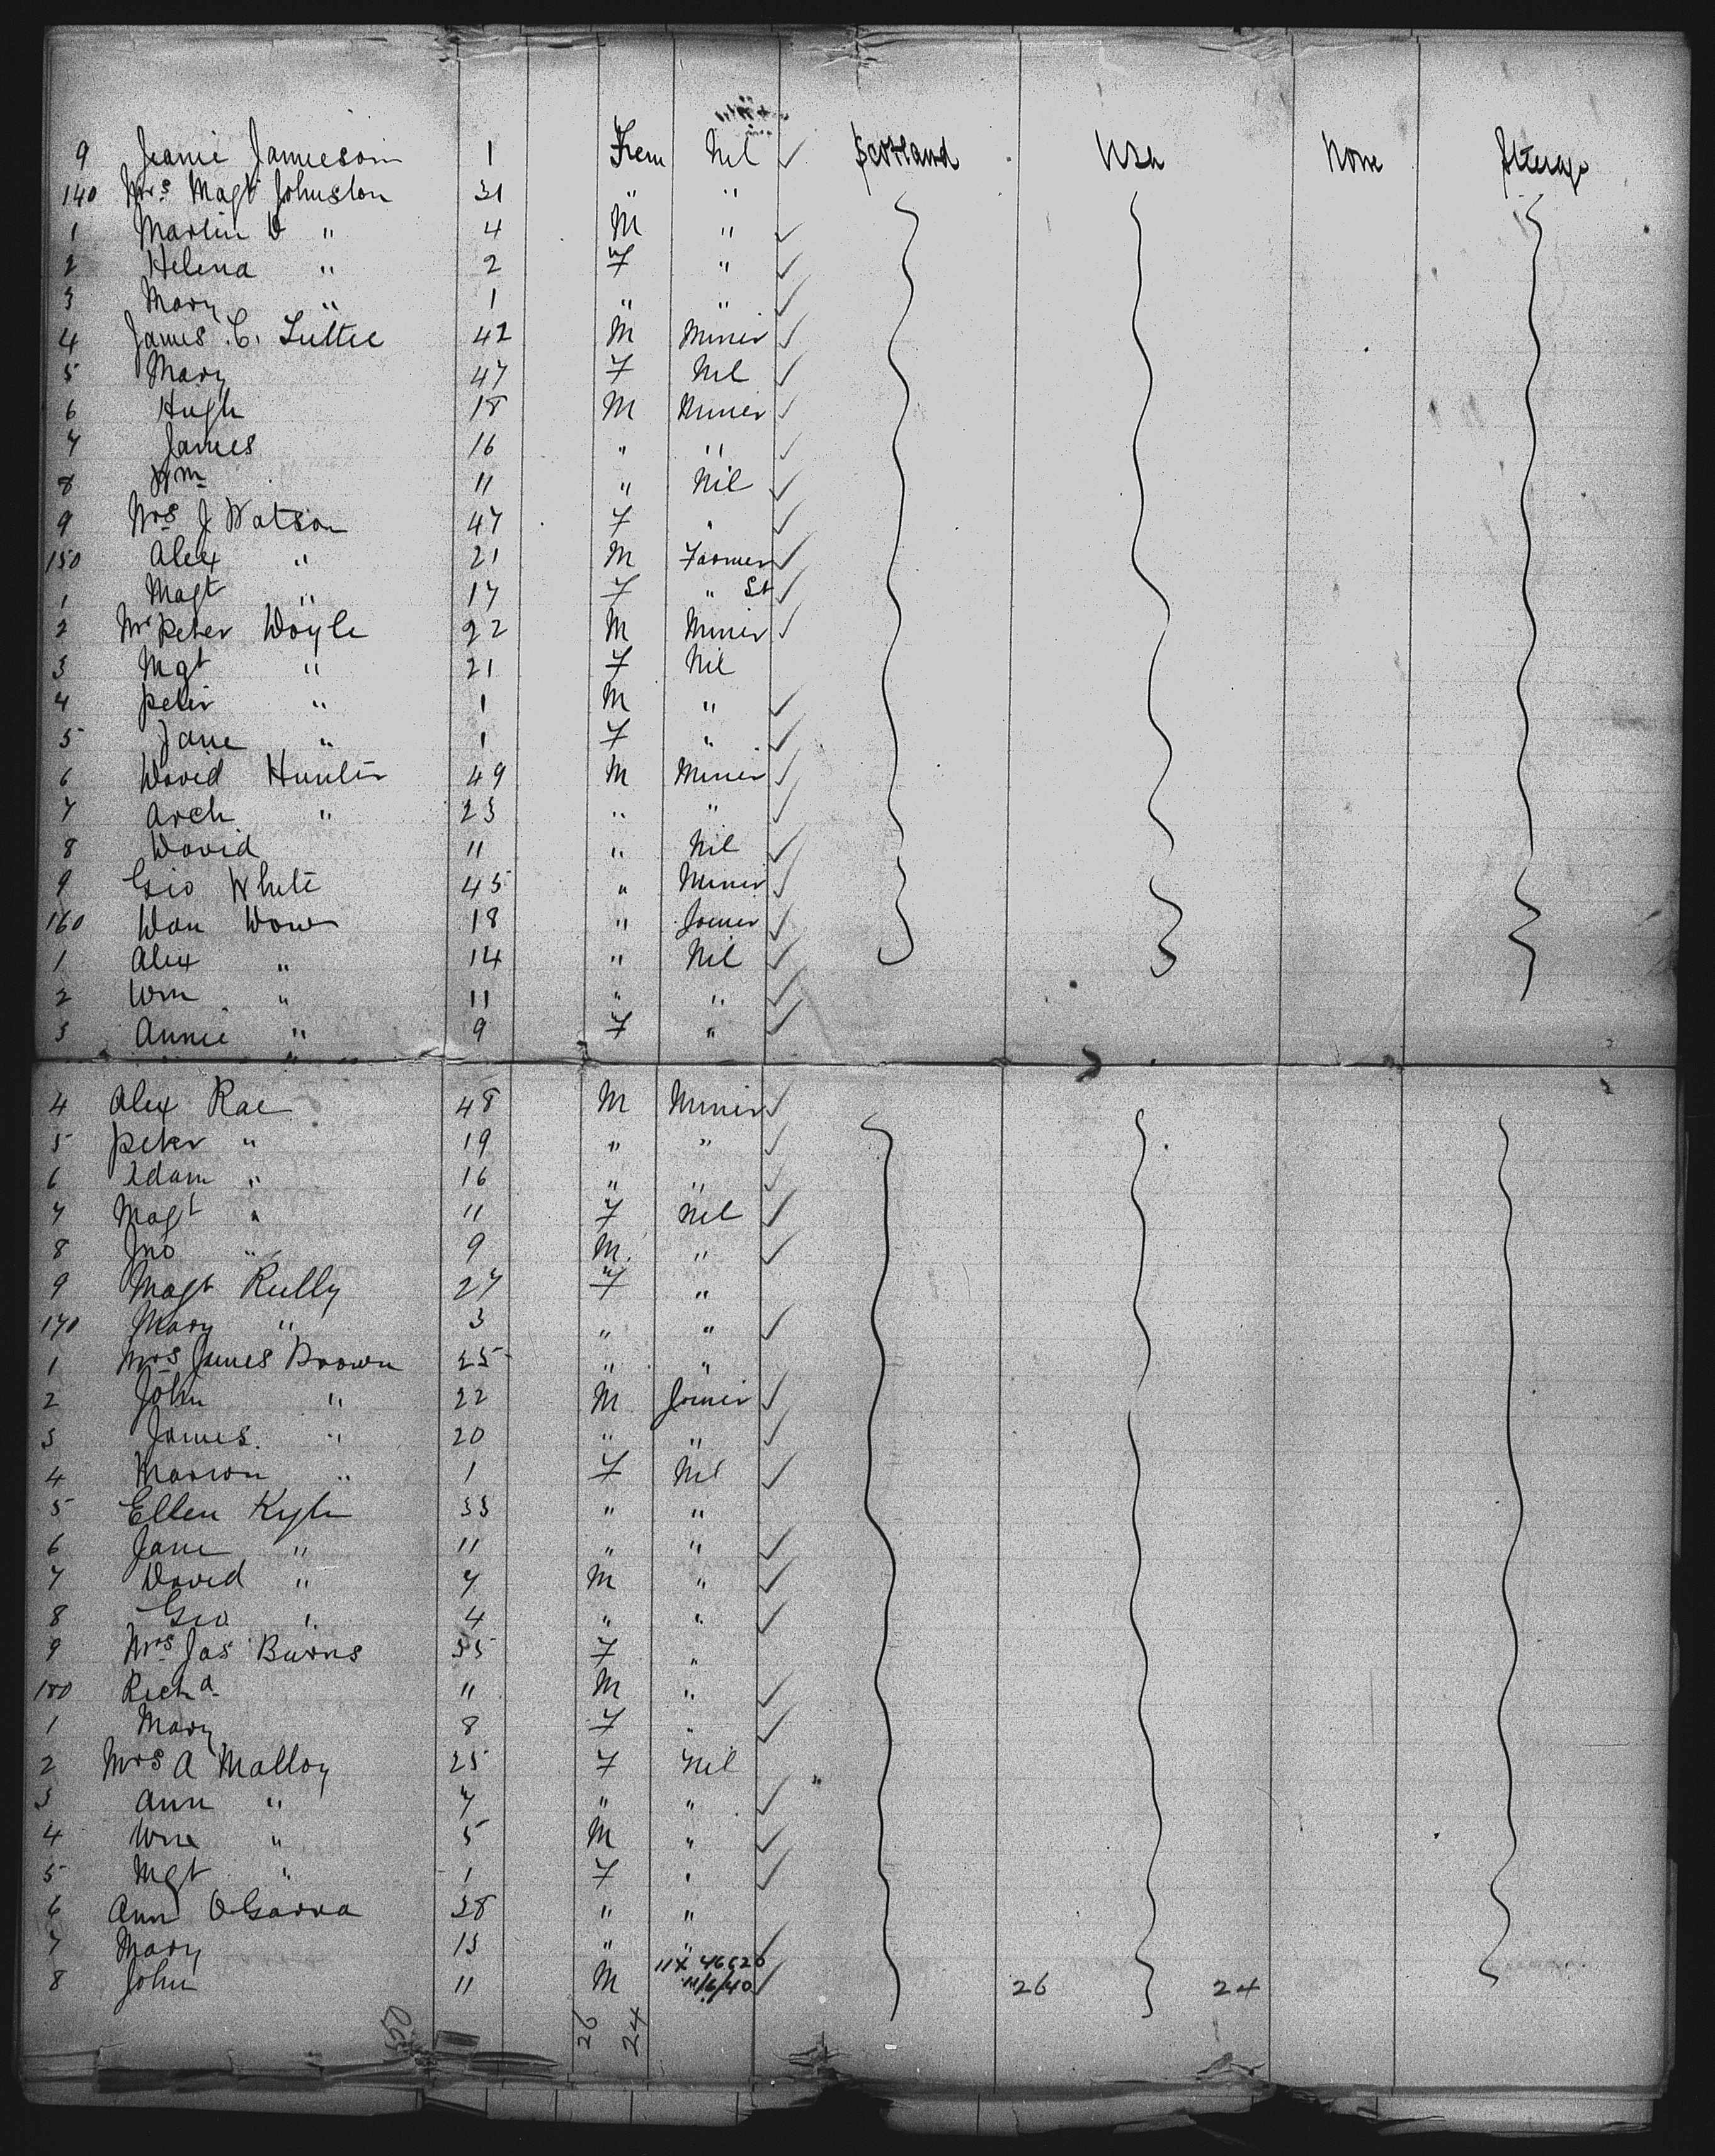 9 Jeanie Jamieson 1 Fem Nil ✓ Scotland USA None Steerage
140 Mrs Magt Johnston 31 " "
1 Martin D " 4 M " ✓
2 Helena " 2 F " ✓
3 Mary " 1 " " ✓
4 James C. 42 M Miner ✓
5 Mary 47 F Nil ✓
6 Hugh 18 M Miner ✓
7 James 16 " " ✓
8 Wm 11 " Nil ✓
9 Mrs J Watson 47 F " ✓
150 Alex " 21 M Farmer ✓
1 Magt " 17 F " ✓
2 Mr Peter Doyle 22 M Miner ✓
3 Mgt " 21 F Nil
4 Peter " 1 M " ✓
5 Jane " 1 F " ✓
6 David Hunter 49 M Miner ✓
7 Arch " 23 " " ✓
8 David 11 " Nil ✓
9 Geo White 45 " Miner ✓
160 Dan Dow 18 " Joiner ✓
1 Alex " 14 " Nil ✓
2 Wm " 11 " " ✓
3 Annie " 9 F " ✓
4 Alex Rae 48 M Miner ✓
5 Peter " 19 " " ✓
6 Adam " 16 " " ✓
7 Magt " 11 F Nil ✓
8 Jno " 9 M " ✓
9 Magt 27 F "
170 Mary " 3 " " ✓
1 Mrs James Brown " "
2 John " 22 M Joiner ✓
3 James " 20 " " ✓
4 Marion " 1 F Nil ✓
5 Ellen Kyle 33 " "
6 Jane " 11 " " ✓
7 David " 7 M " ✓
8 Geo " 4 " " ✓
9 Mrs Jas Burns 35 F "
180 Richd 11 M " ✓
1 Mary 8 F " ✓
2 Mrs A Malloy 25 F Nil
3 Ann " 7 " " ✓
4 Wm " 5 M " ✓
5 Mgt " 1 F " ✓
6 Ann OGarra 38 " "
7 Mary 13 " " ✓
11X 46620
8 John 11 M 11/6/40 ✓ 26 24
26 24